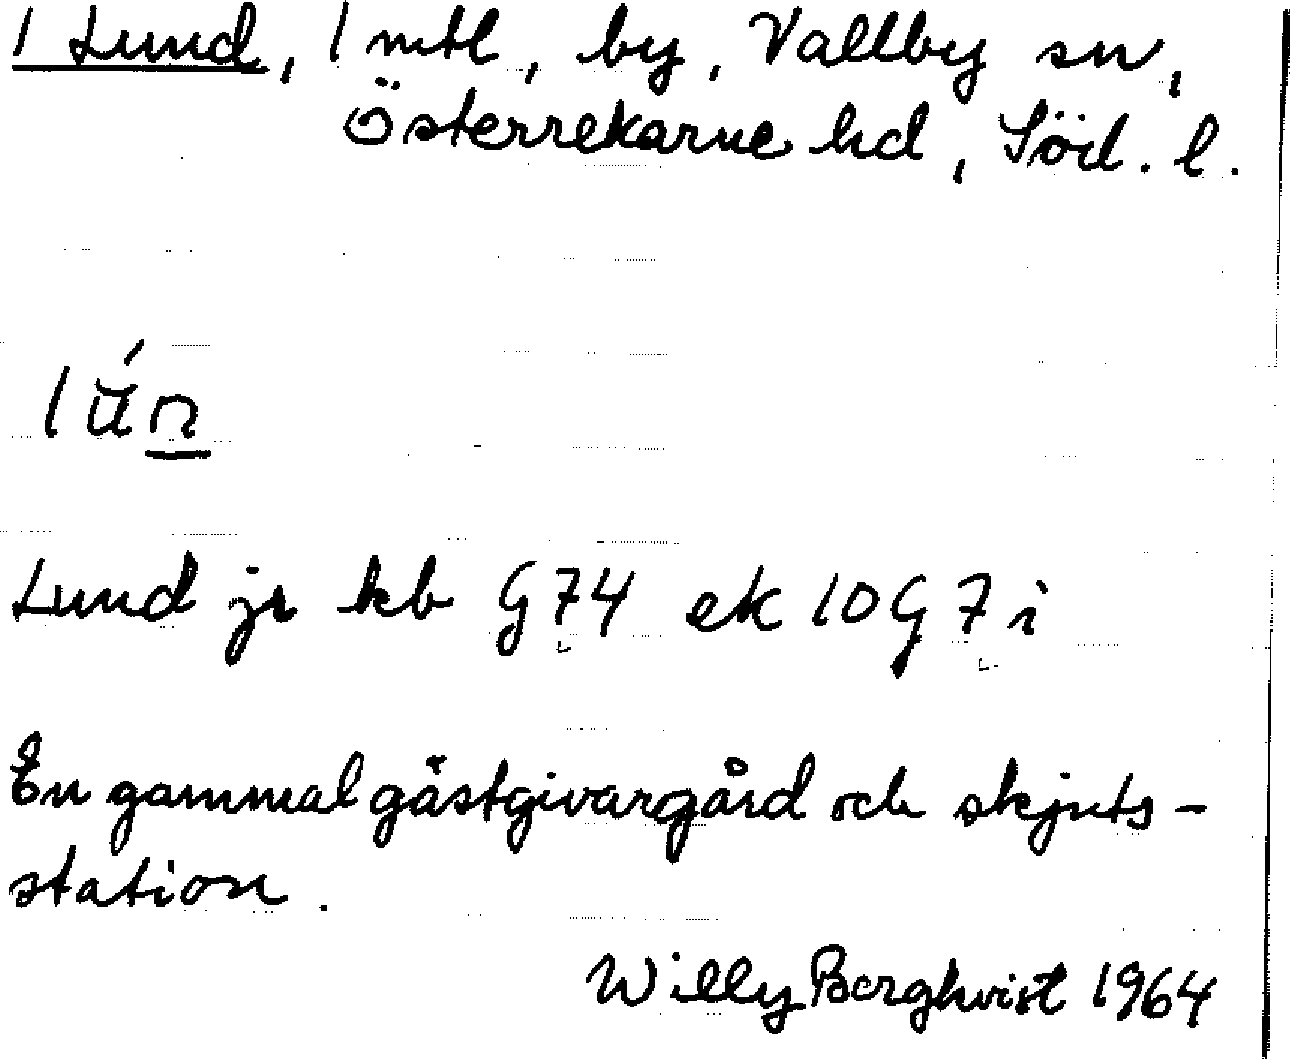 1 Lund, 1 mtl, by, Vallby sn,
Österrekarne hd, Söd. l.
lŭ́n
Lund jr kb G74 ek 10G7i
En gammal gästgivargård och skjuts-
station.
Willy Bergkvist 1964